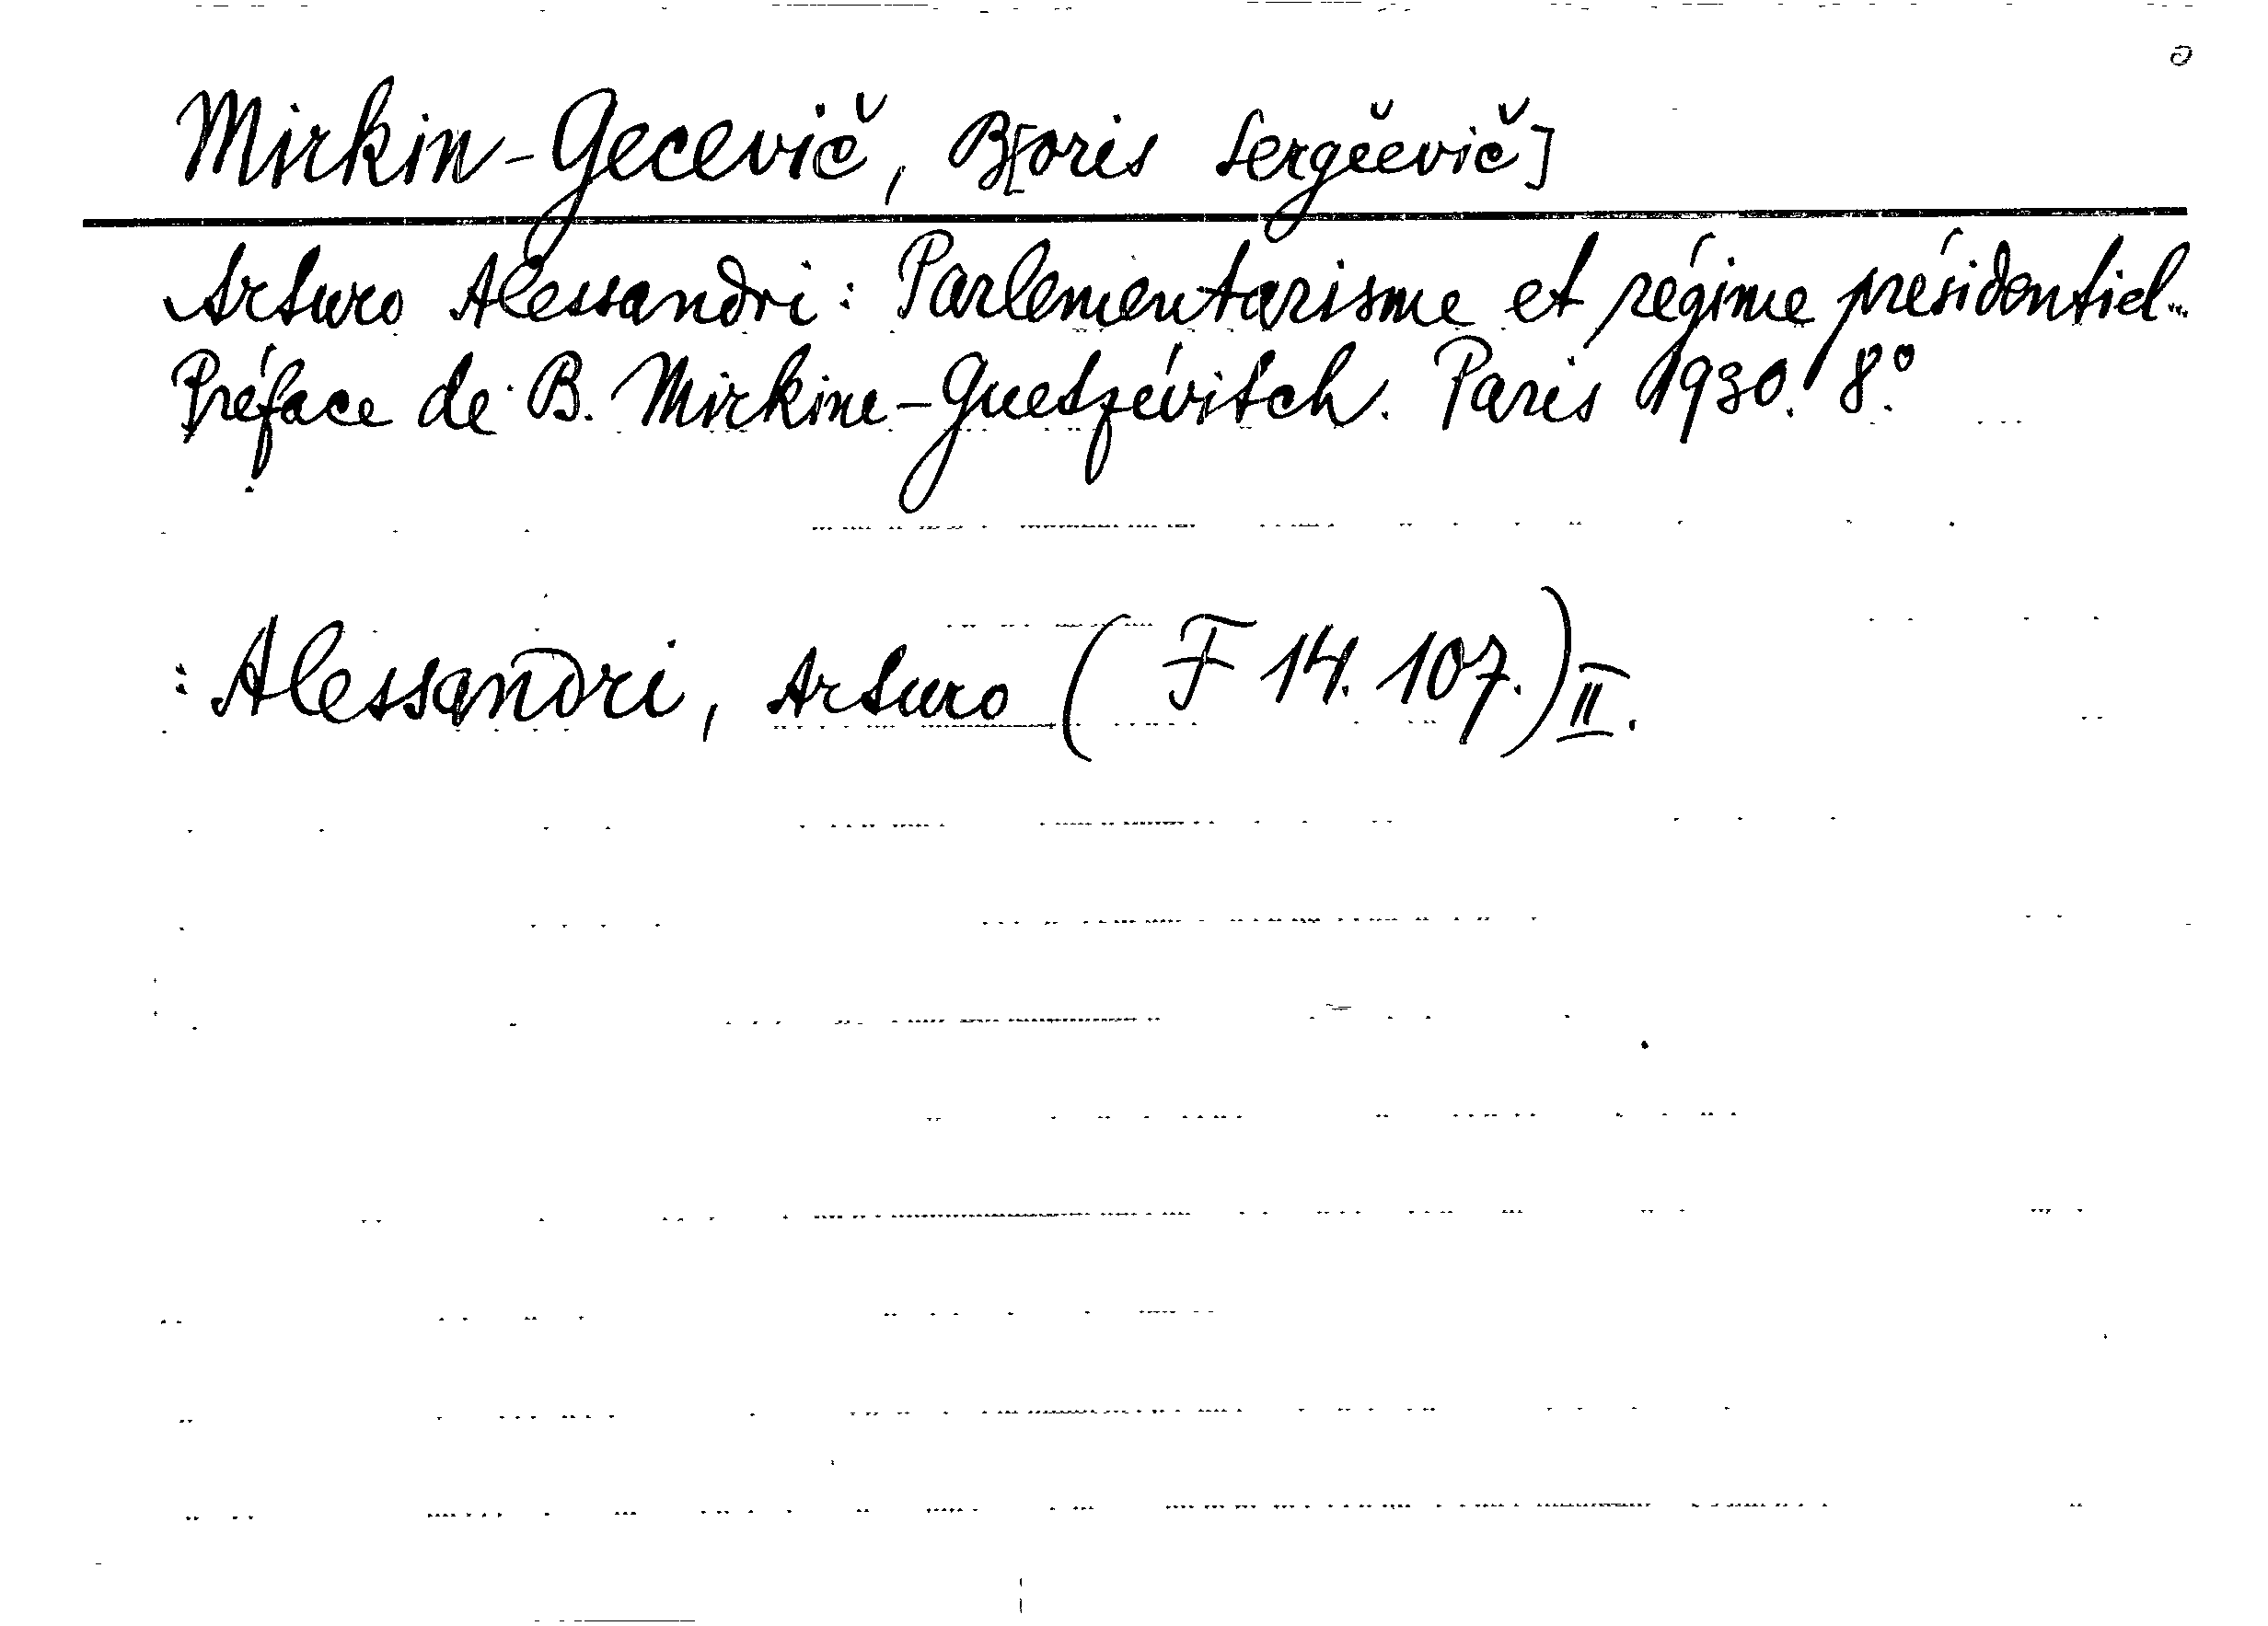 Mirkin-Gecevič, B[oris Sergěevič]
Arturo Alessandri: Parlementarisme et régime présidentiel...
Préface de B. Mirkine-Guetzévitch. Paris 1930. 8°.
: Alessandri, Arturo (F 14.107.) II.